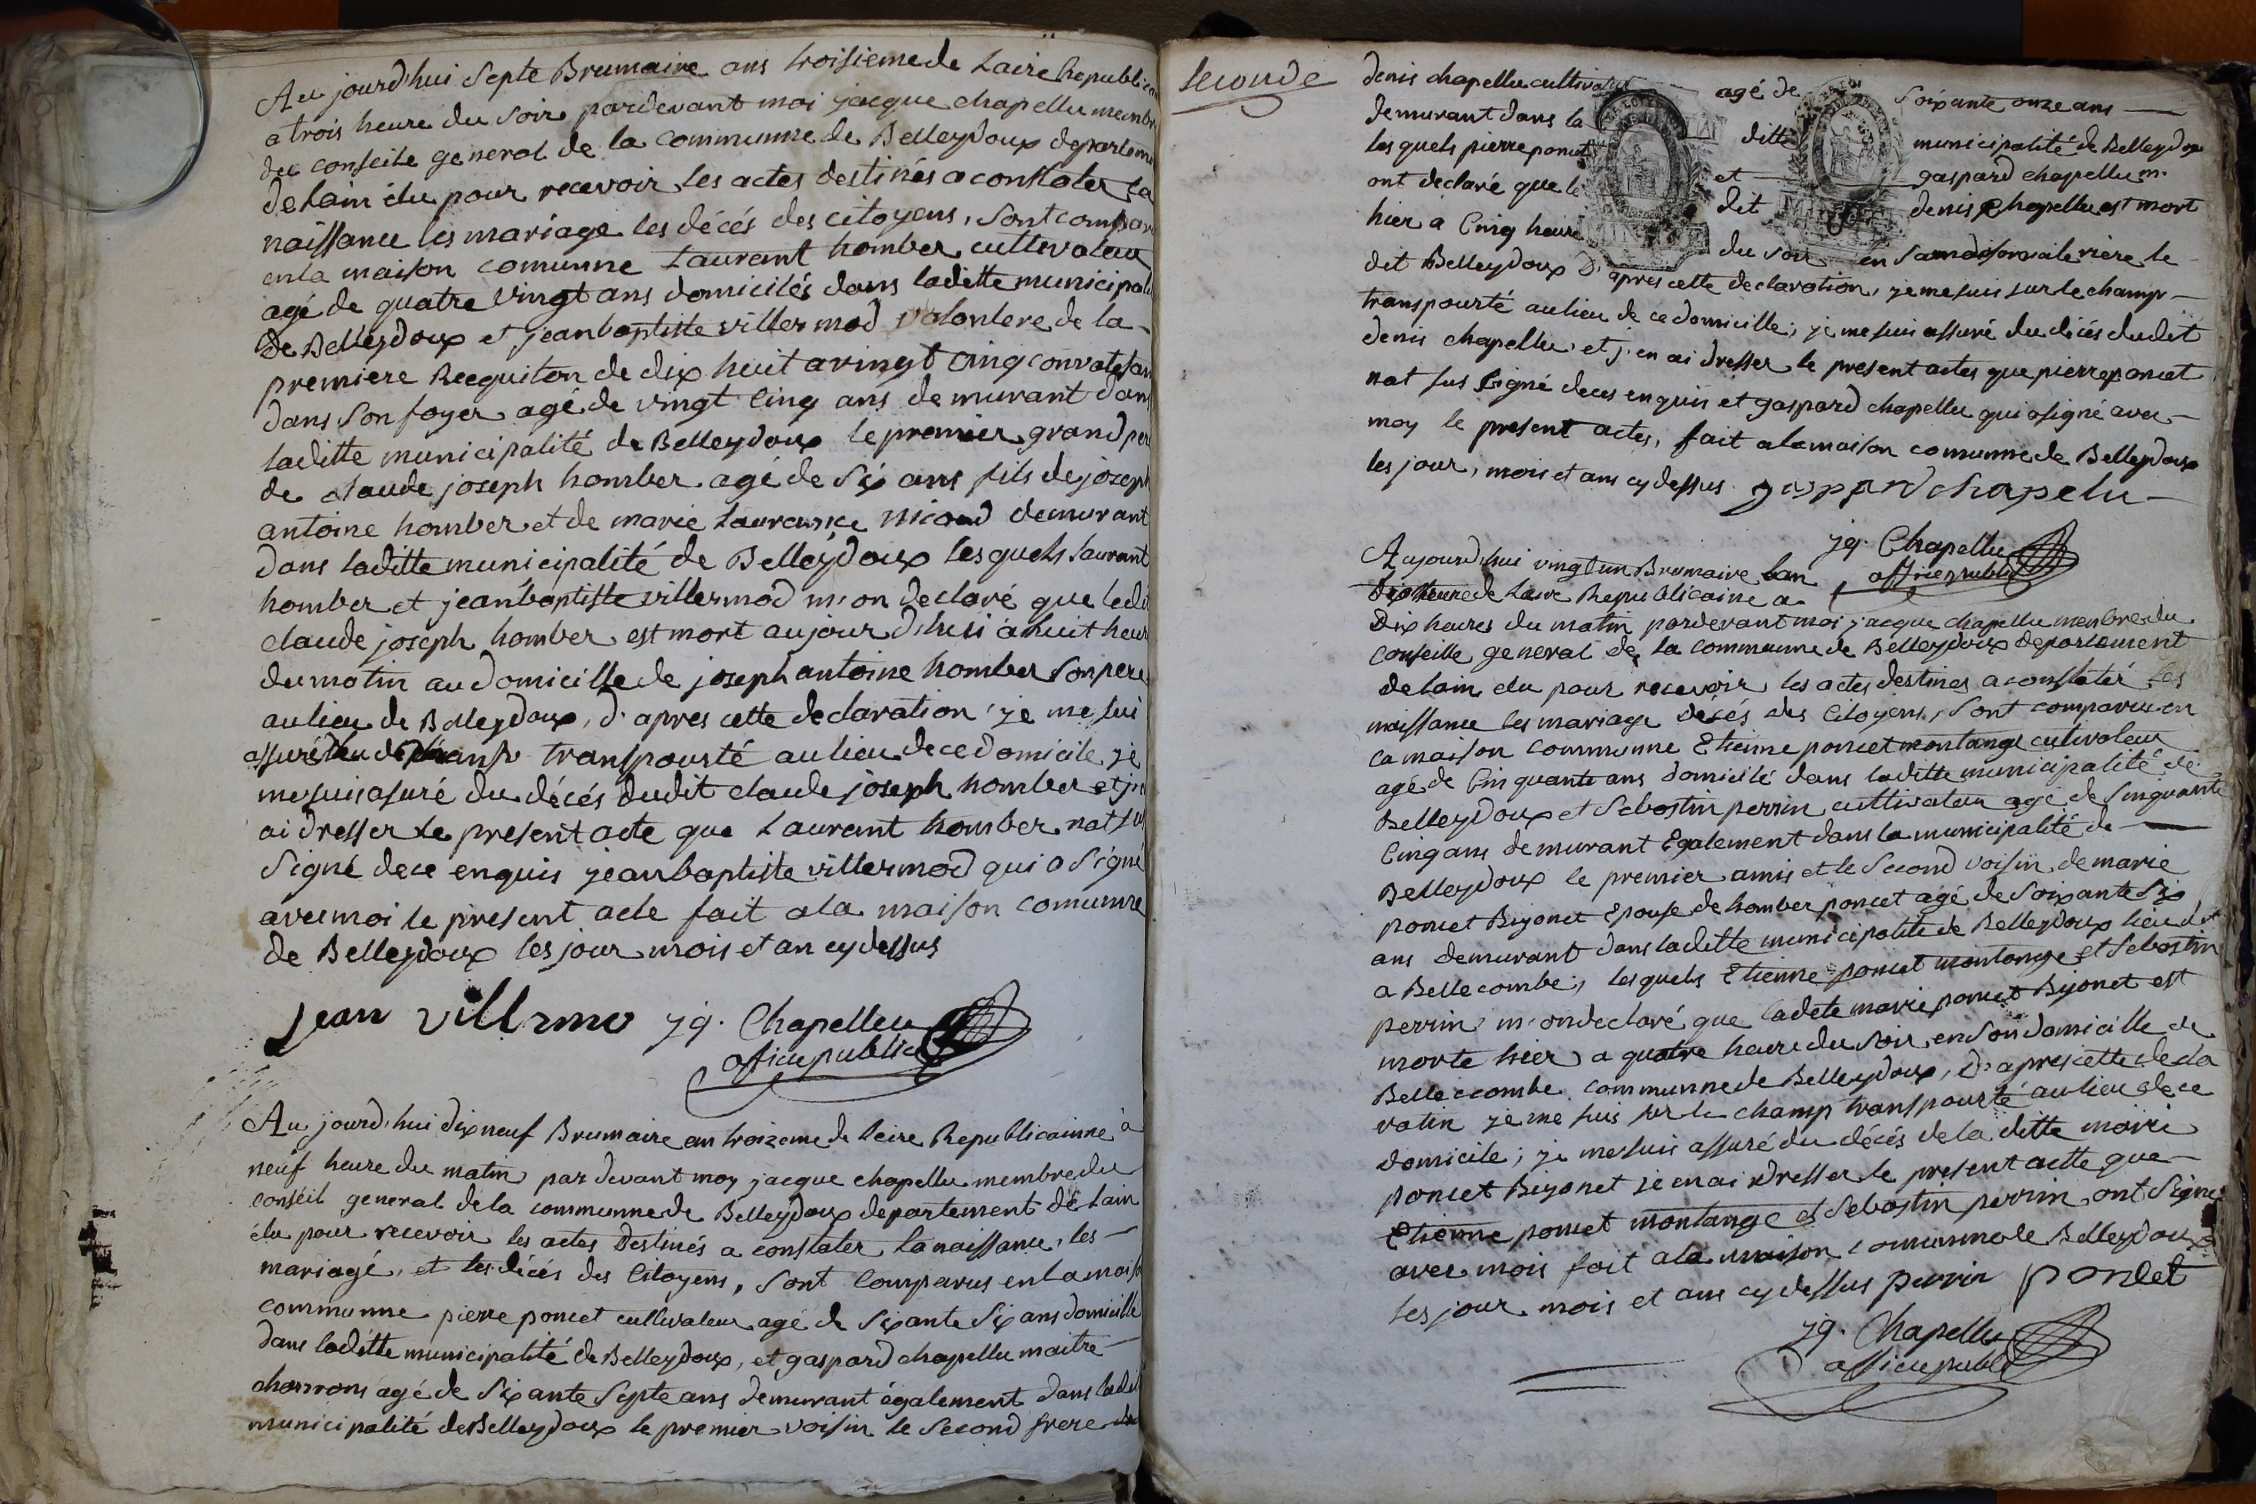 Au jourd'hui septe Brumaire ans troisieme de Laire Republi
a trois heure du soir pardevant moi jacque chapellu membr
du conseile general de la communne de Belleydoux departeme
delain élu pour recevoir les actes destinés a constater la
naissance les mariage les décés des citoyens, sont compar
en la maison comunne Laurant homber cultivateur
agé de quatre vingt ans domicilés dans laditte municipali
de Belleydoux et jean baptiste villermod volontere de la
premiere Recquiton de dix huit a vingt cinq convalesan
dans son foyer agé de vingt cinq ans demurant dans
laditte municipalité de Belleydoux le premier grand per
de claude joseph homber agé de six ans fils de joseph
antoine homber et de marie Laurence nicoud demurant
dans laditte municipalité de Belleydoux lesquels Laurant
homber et jean baptiste villermod m'on declaré que ledi
claude joseph homber est mort aujourd'hui a huit heur
du matin au domicille de joseph antoine homber son pere
au lieu de Belleydoux, d'apres cette declaration je me sui
assuré transpourté au lieu de ce domicile je
me suis asuré du décés dudit claude joseph homber et j'en
ai dresser le present acte que Laurant homber nat sus
signé dece enquis jean baptiste villermod qui a signé
avec moi le present acte fait a la maison comunne
de Belleydoux les jour mois et an cy dessus
jean villrmo jq. Chapellu
officie public
Au jourd'hui dix neuf Brumaire an troizeme de leire Republicainne à
neuf heure du matin par devant moy jacque chapellu membre du
conséil general de la communne de Belleydoux departement de lain
élu pour recevoir les actes destinés a constater la naissance, les
mariagé, et les décés des citoyens, sont comparus en la mais
communne pierre poncet cultivateur agé de sixante six ans domicille
dans laditte municipalité de Belleydoux, et gaspard chapellu maitre
charrons agé de sixante septe ans demurant également dans ladit
municipalité de Belleydoux le premier voisin le second frere du
seconde
denis chapellu cultivateur agé de soixante onze ans
demurant dans la ditte municipalité de Belleydoux
les quels pierre poncet et gaspard chapellu m.
ont declaré que le dit denis chapellu est mort
hier a cinq heure du soir en sa rière le
dit Belleydoux d'apres cette declaration, je me suis sur le champ
transpourté au lieu de ce domicille; je me sui assuré du décés dudit
denis chapellu et j'en ai dresser le present actes que pierre poncet
nat sus signé deces enquis et gaspard chapellu qui a signé avec
moy le present actes, fait a la maison comunne de Belleydoux
les jour, mois et ans cy dessus gaspard chapelu
jq. Chapellu
officie public
Aujourd'hui vingt un Brumaire lan
de Laire Republicaine a
Dix heures du matin pardevant moi jacque chapellu menbre du
conseille general de la communne de Belleydoux departement
de lain elu pour recevoir les actes destines a constatér les
naissance les mariage décés des citoyens, sont comparus en
la maison communne Etienne poncet montange cutivateur
agé de cinquante ans domicilé dans laditte municipalité de
Belleydoux et Sebastin perrin cultivateur agé de sinquante
cinq ans demurant Egalement dans la municipalité de
Belleydoux le premier amis et le second voisin de marie
poncet Bijonet Epouse de homber poncet agé de soixante six
ans demurant dans laditte municipalité de Belleydoux lieu dit
a Bellecombe; lesquels Etienne poncet montange et Sebastin
perrin m'on declaré que ladete marie poncet Bijonet est
morte hier a quatre heure du soir en son domicille de
Belleccombe communne de Belleydoux, D'apres cette decla
ration je me suis sur le champ transpourté au lieu de ce
domicile; je me suis assuré du décés de la ditte marie
poncet Bijonet je en ai dresser le present actte que
Etienne poncet montange et Sebastin perrin ont signé
avec mois fait a la maison comunne de Belleydoux
les jour mois et ans cy dessus perrin poncet
jq. Chapellu
officie public